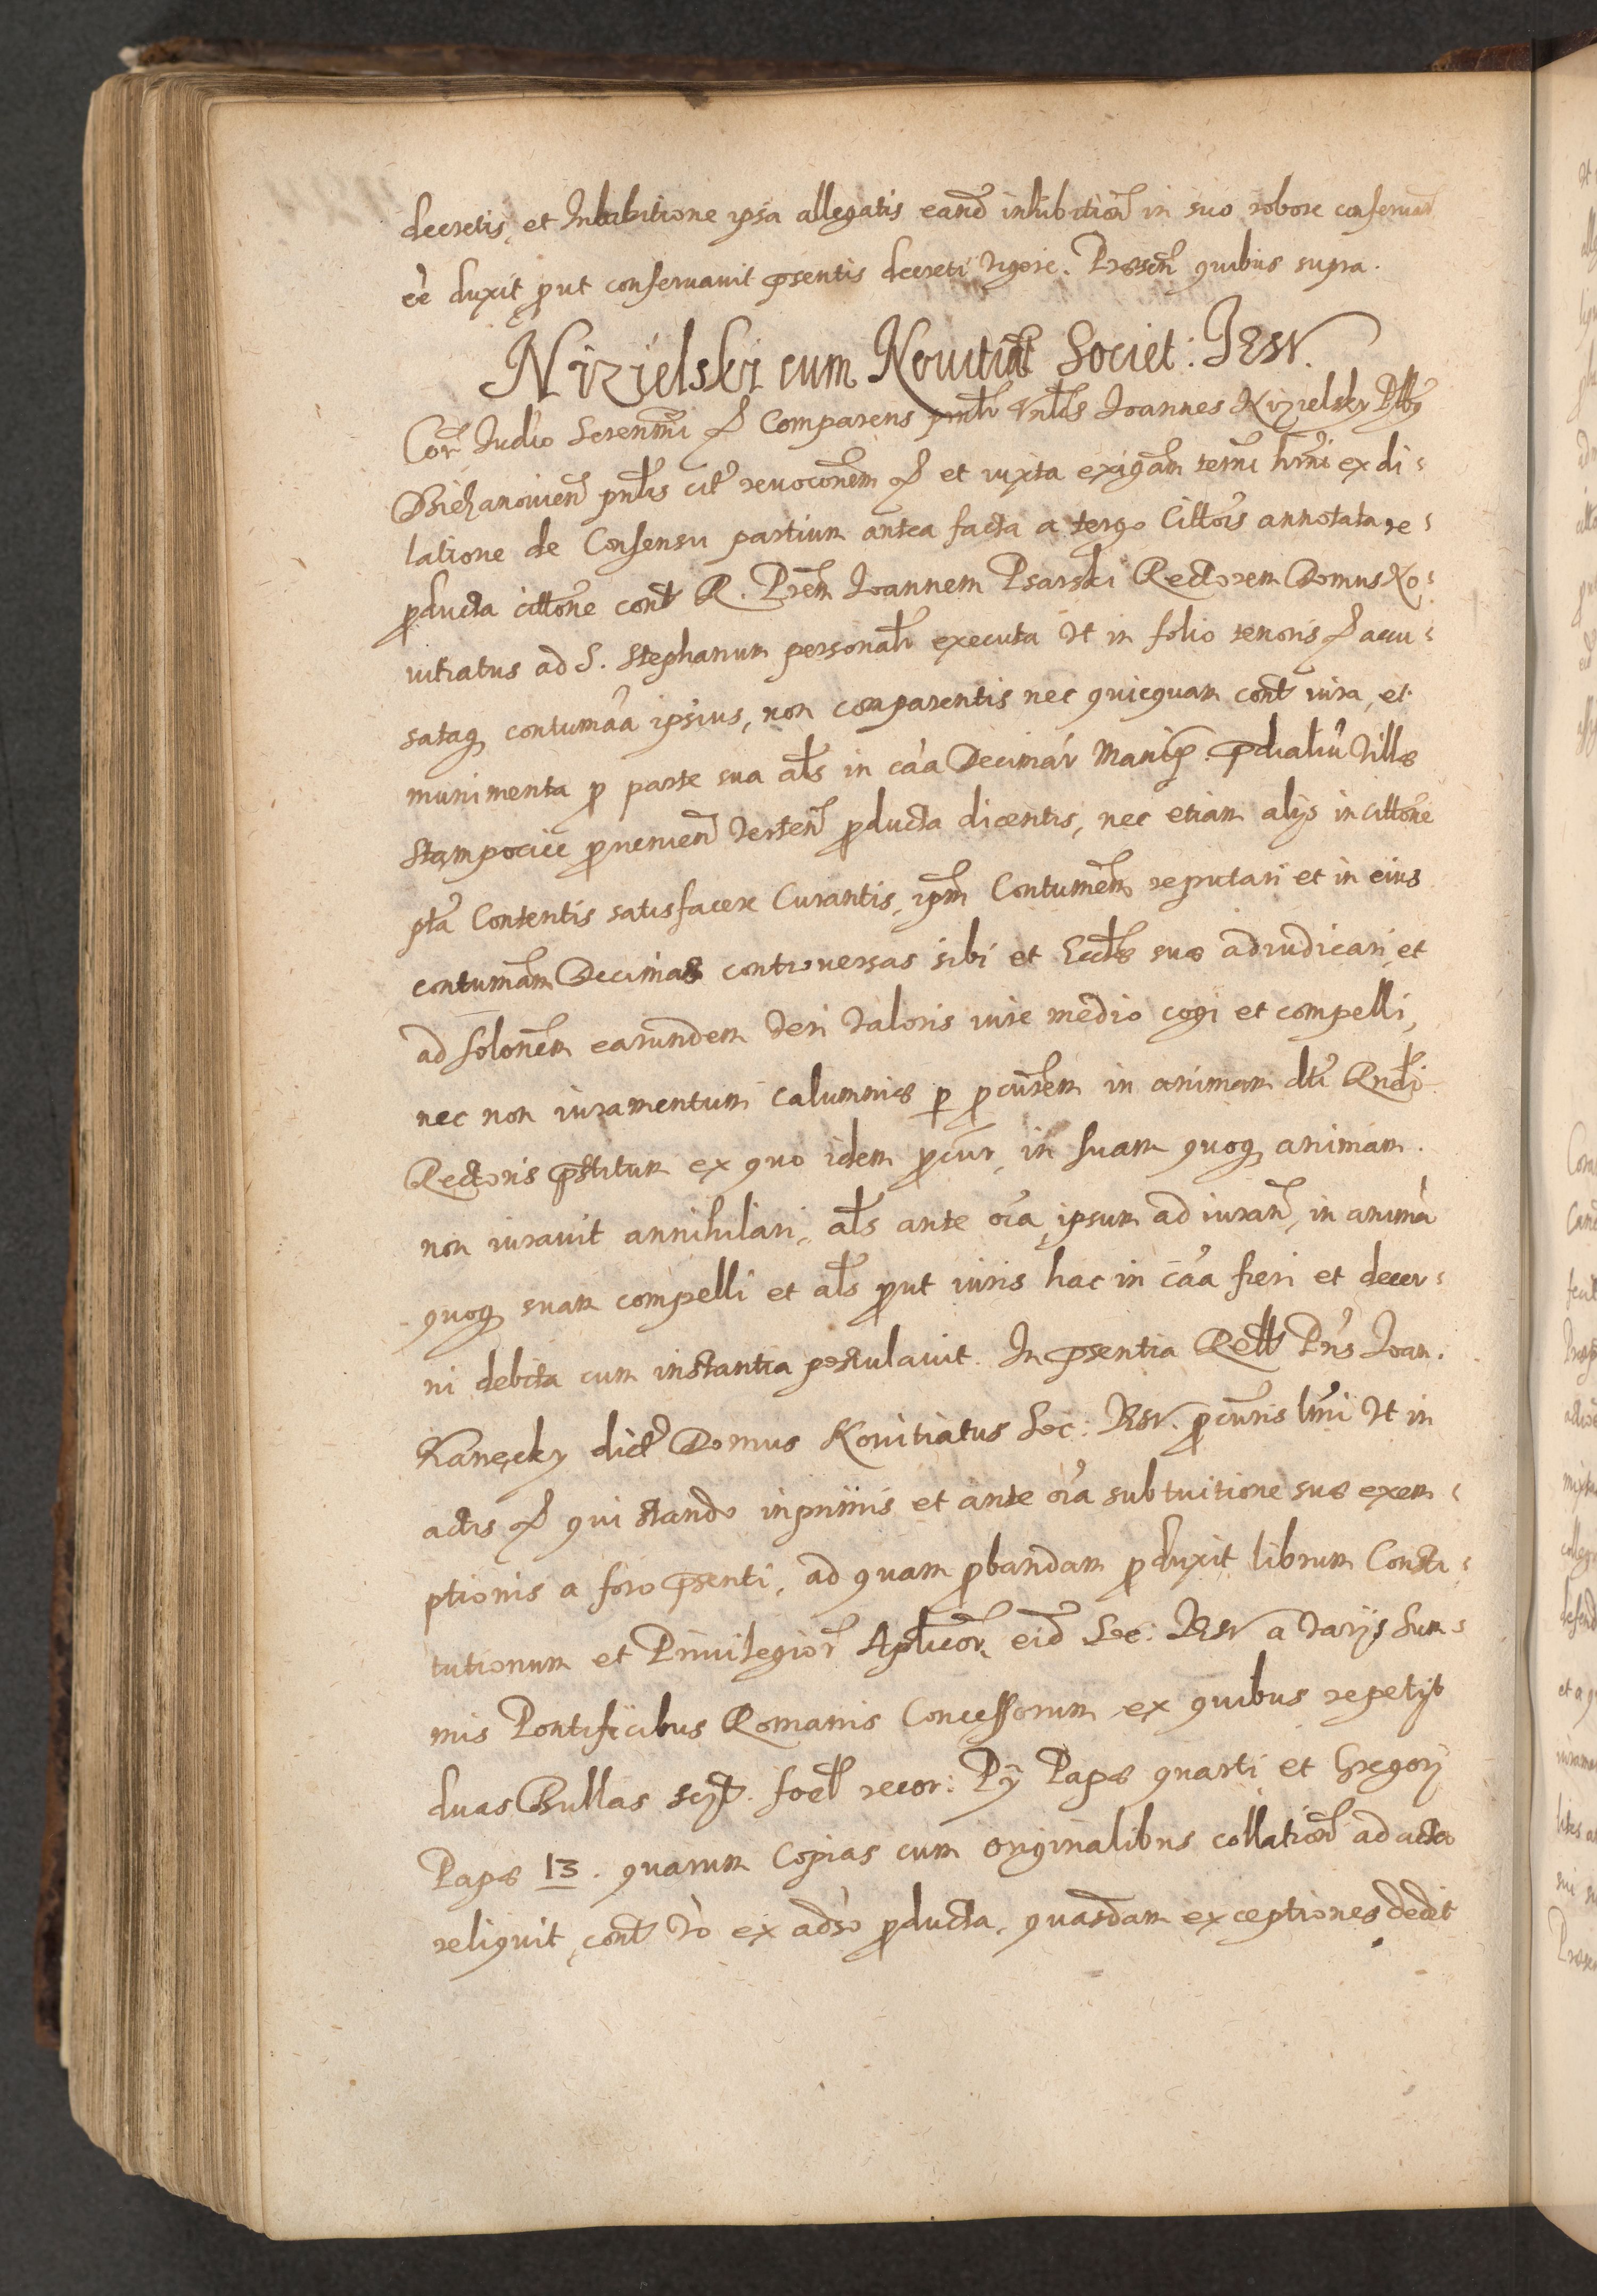 decretis, et Inhibitione ipsa allegatis eand inhibition in suo robore conseruan
eē duxit, put conseruauit psentis decreti vigore. Præsen quibus supra.
Nizielski cum Nouitiat Societ: Iesv.
Cor Iudio Serenmi & Comparens pnlr Vnlbs Ioannes Nizielsky Plbs
Biechanouien pnlis citr reuoconem & et iuxta exigam termi hrni ex di-
latione de Consensu partium antea facta a tergo Cittois annotata re-
pducta cittone cont R. Prem Ioannem Psarski Rectorem Domus No-
uitiatus ad S. Stephanum personalr executa vt in folio tenoris & accu-
sataq contumaa ipsius, non comparentis nec quicquam cont iura, et
munimenta p parte sua als in caa Decimar Manip. pdialiu villæ
Stampocice puenien verten pducta dicentis, nec etiam alijs in cittone
pta Contentis satisfacere Curantis, ipm Contumem reputari et in eius
contumam Decimas controuersas sibi et Eccles suæ adiudicari, et
ad solonem earundem veri valoris iure medio cogi et compelli,
nec non iuramentum calumniæ p pcurem in animam dti Rndi
Rectoris pstitum ex quo idem pcur, in suam quoq animam
non iurauit annihilari, als ante oia, ipsum ad iuran, in anima
quoq suam compelli et als put iuris hac in caa fieri et decer-
ni debita cum instantia postulauit. In psentia Rell Pris Ioan.
Kanęcky dict Domus Nouitiatus Soc: Iesv. pcuris lmi vt in
actis & qui stando inprimis et ante oia sub tuitione suæ exem-
ptionis a foro psenti, ad quam pbandam pduxit librum Consti-
tutionum et Priuilegior Aplicor, eid Soc: Iesv a varijs Sum-
mis Pontificibus Romanis Concessorum ex quibus repetijt
duas Bullas scipt. foel recor: Pij Papæ quarti et Gregorij
Papæ 13. quarum Copias cum originalibus collation ad acta
reliquit, cont vo ex adso pducta, quasdam exceptiones dedit